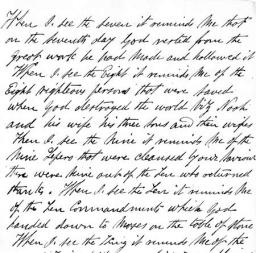 When I see the seven it reminds me that
on the seventh day God rested from the
great work he had made and hollowed it
When I see the Eight it reminds me of the
Eight righteous persons that were saved
when God destroyed the world Viz Noah
and his wife his three sons and their wifes
When I see the Nine it reminds me of the
Nine Lepers that were cleansed by our Saviour
there were nine out of the Ten who returned
thanks. When I see the Ten it reminds me
of the Ten Commandments which God
handed down to Moses on the table of Stone
When I see the King it reminds me of the